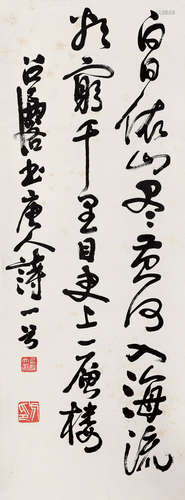 白日依山尽黄河入海流
欲穷千里目更上一层楼
书唐人诗一首